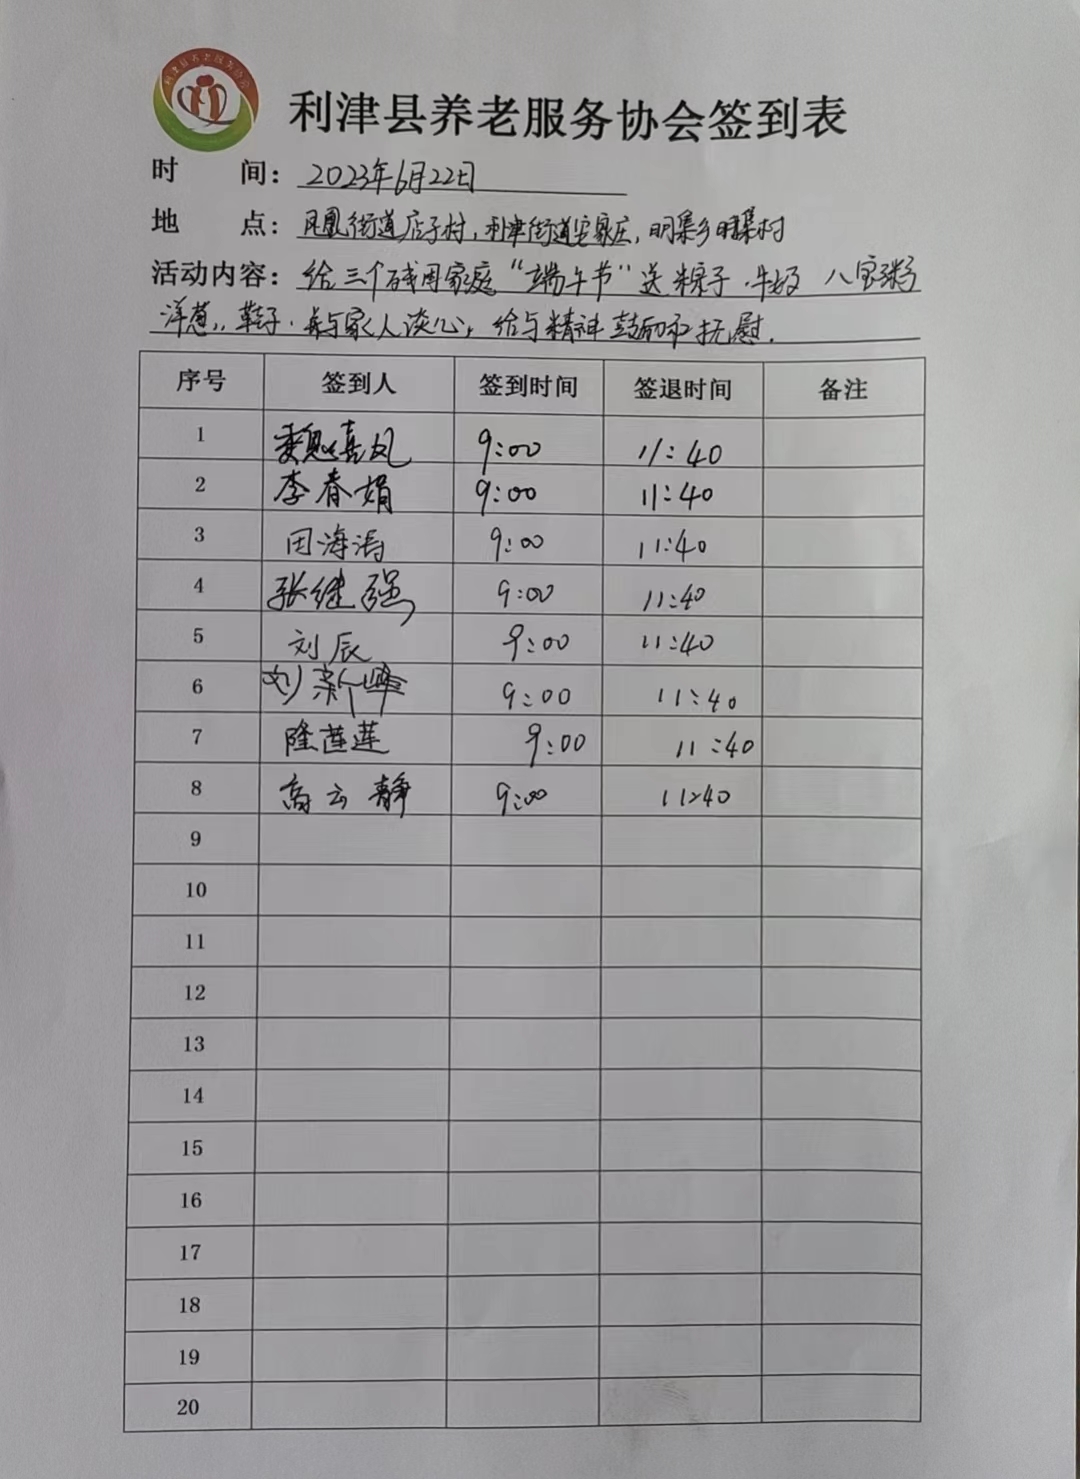 利津县养老服务协会
利津县养老服务协会签到表
时 间：2023年6月22日
地 点：凤凰街道店子村，利津街道宋家庄，明集乡明集村
活动内容：给三个残困家庭“端午节”送粽子、牛奶 八宝粥
洋葱、鞋子、并与家人谈心，给与精神鼓励和抚慰．
序号 签到人 签到时间 签退时间 备注
1 魏喜凤 9:00 11:40
2 李春娟 9:00 11:40
3 田海涛 9:00 11:40
4 张继强 9:00 11:40
5 刘辰 9:00 11:40
6 刘新峰 9:00 11:40
7 隆莲莲 9:00 11:40
8 高云静 9:00 11:40
9
10
11
12
13
14
15
16
17
18
19
20